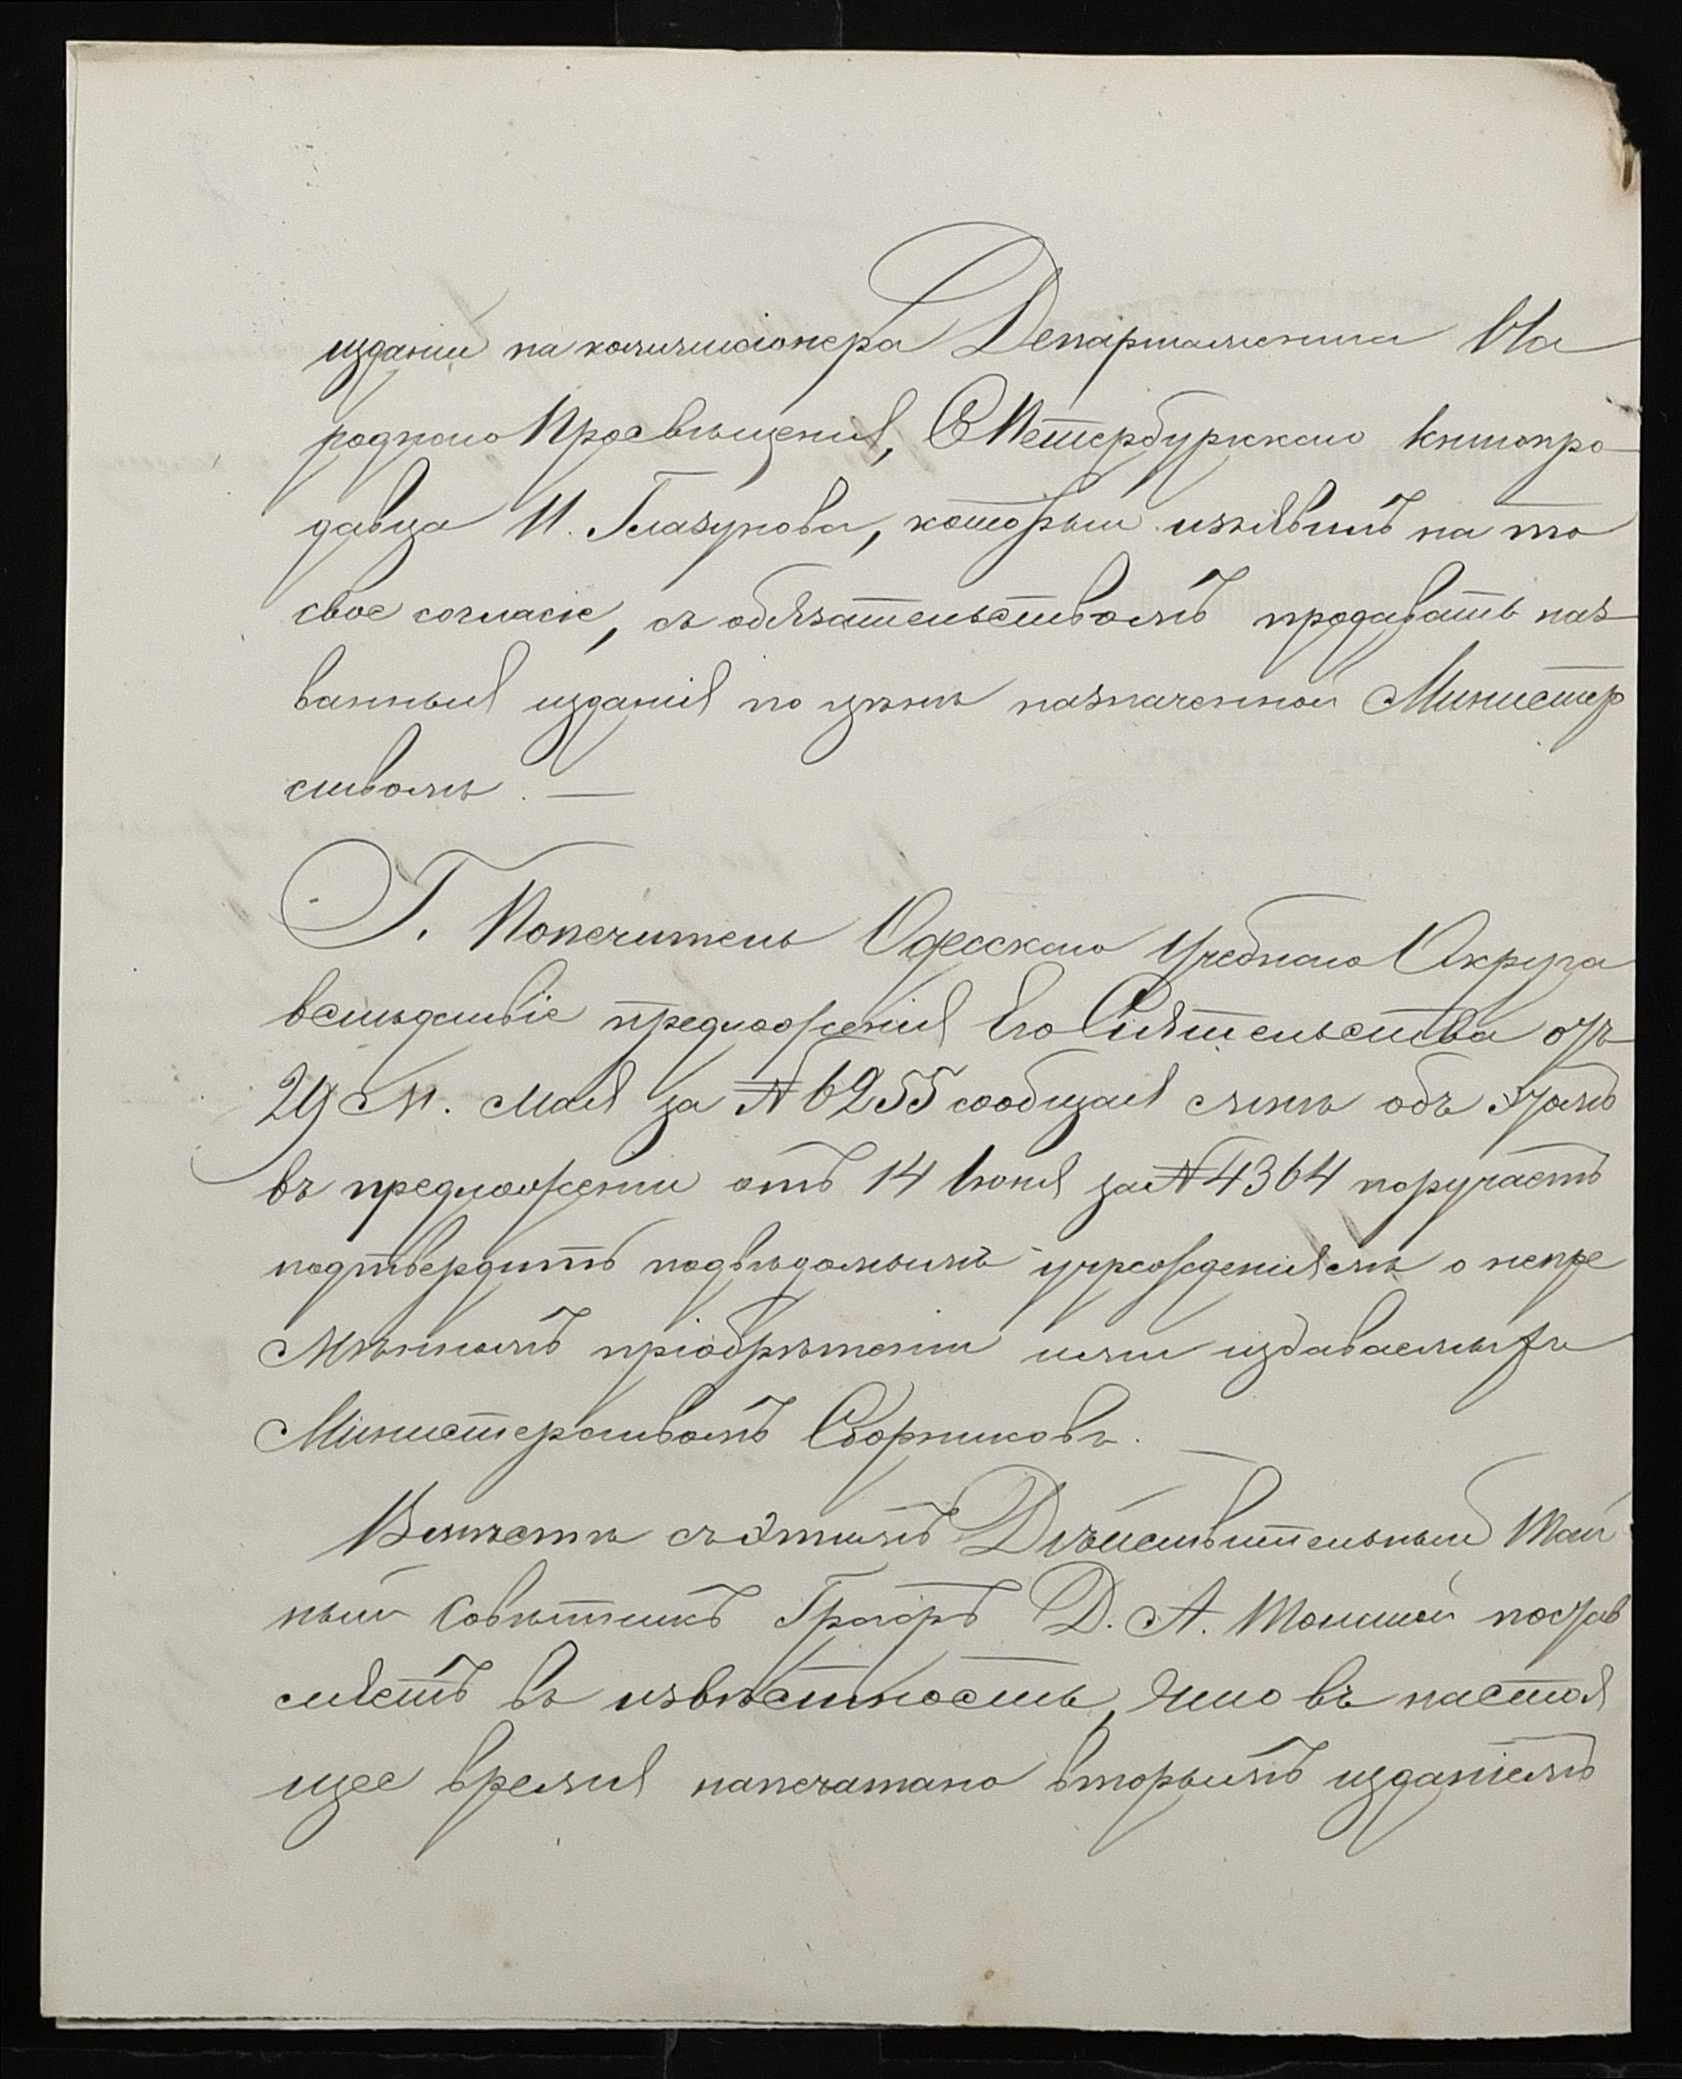 изданій на коммисіонера Департамента На
роднаго Просвѣщенія, СПетербургскаго книгопро-
давца И. Глазунова, который изъявилъ на то
свое согласіе, съ обязательствомъ продавать наз-
ванныя изданія по цѣнѣ назначенной Министер
ствомъ. —
Г. Попечитель Одесскаго Учебнаго Округа
вслѣдствіе предложенія Его Сіятельства отъ
29 м. Мая за № 6255 сообщая мнѣ объ этомъ
въ предложеніи отъ 14 Іюня за № 4364 поручаетъ
подтвердить подвѣдомымъ учрежденіямъ о непре
мѣнномъ пріобрѣтеніи ими издаваемыхъ
Министерствомъ Сборниковъ. —
Вмѣстѣ съ этимъ Дѣйствительный Тай
ный Совѣтникъ Графъ Д. А. Толстой постав
ляетъ въ извѣстность, что въ настоя
щее время напечатано вторымъ изданіемъ